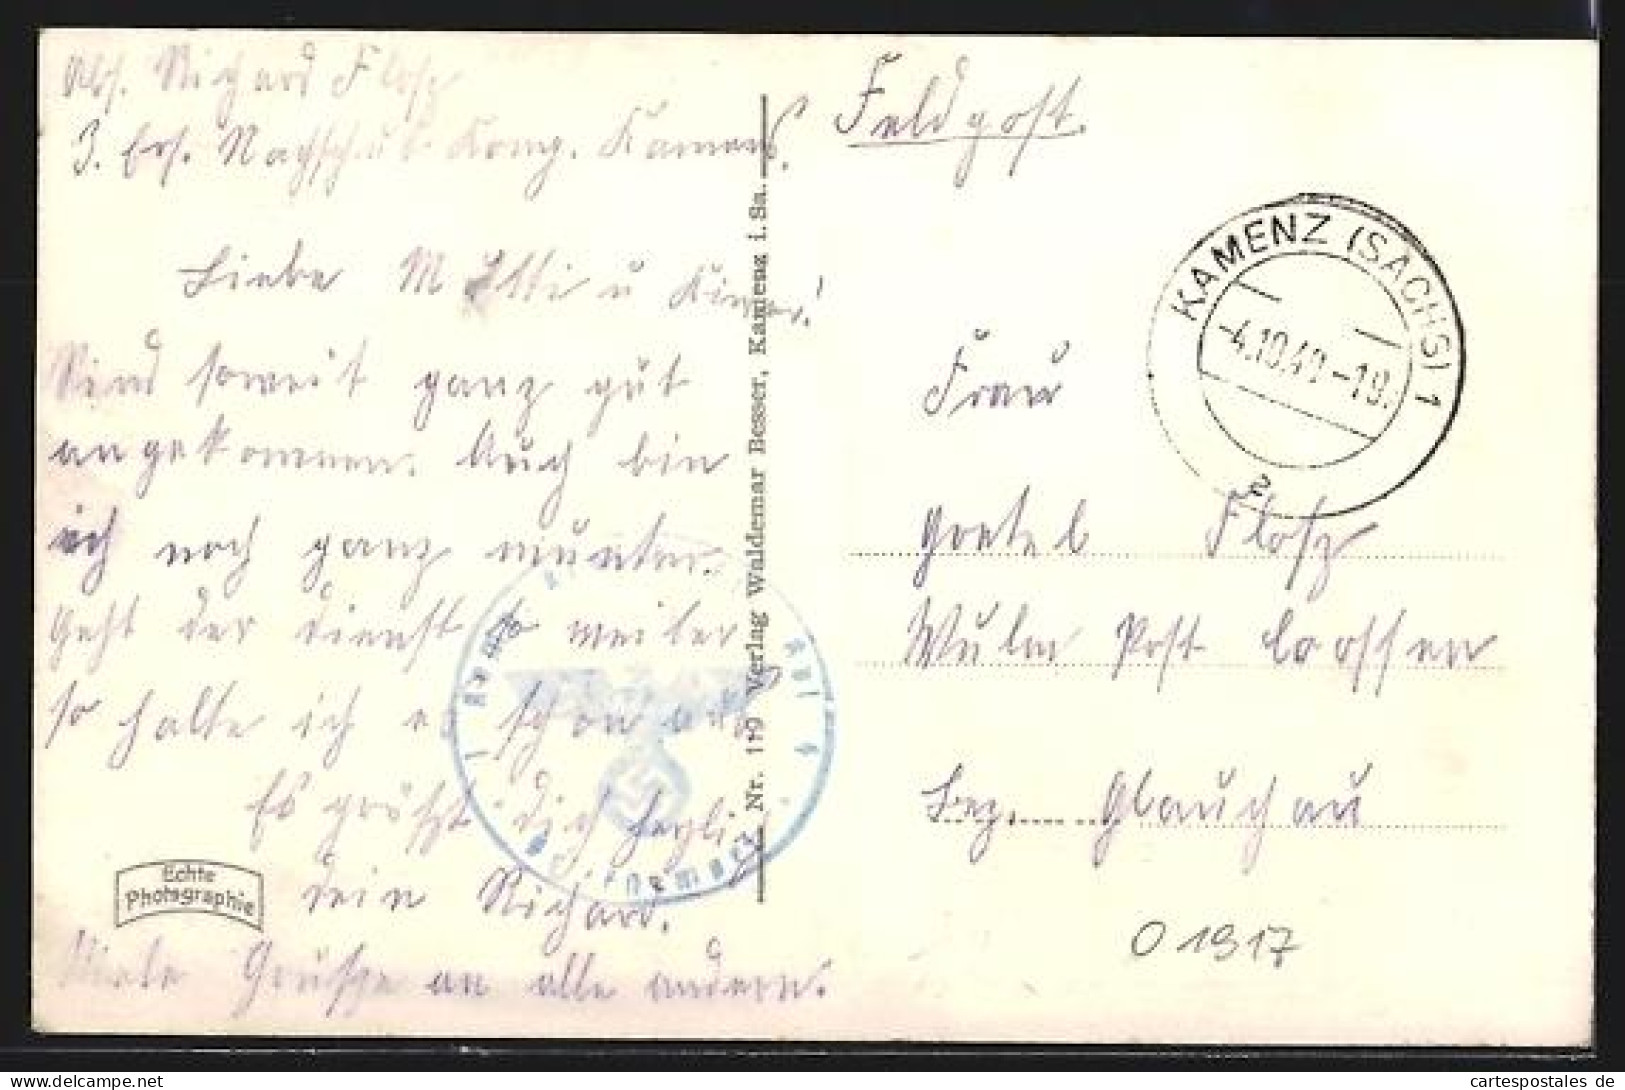 Abs. Richard Flosz
3. Ers. Nachschub Komp. Kamenz.
Liebe Mutti u Kinder!
Sind soweit ganz gut
angekommen. Auch bin
ich noch ganz munter.
Geht der dienst so weiter
so halte ich es schon aus
Es grüszt dich herzlich
dein Richard.
Viele Grüsze an alle andern.
Echte
Photographie
Nr. 119 Verlag Waldemar Besser, Kamenz i. Sa.
Feldpost.
KAMENZ (SACHS) 1
-4.10.40.-19.
a
Frau
Gretel Flosz
Wulm Post
Bez. Glauchau
O 1917
cartespostales de